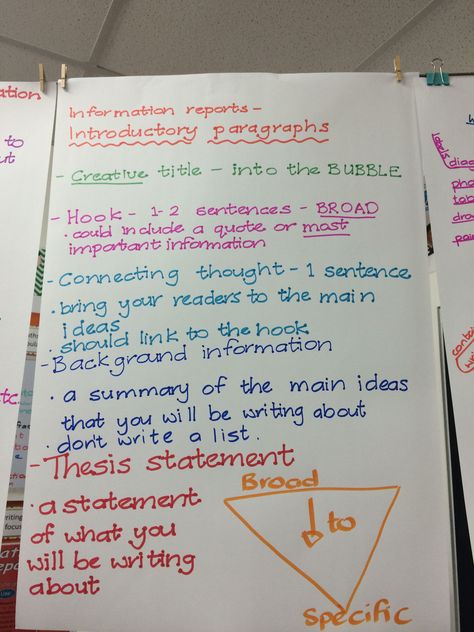 Information reports -
Introductory paragraphs
- Creative title - into the BUBBLE
- Hook - 1-2 sentences - BROAD
• could include a quote or most
important information
- Connecting thought - 1 sentence
• bring your readers to the main
ideas
• should link to the hook
- Background information
• a summary of the main ideas
that you will be writing about
• don't write a list.
- Thesis statement
• a statement
of what you
will be writing
about
Broad
to
Specific
ation
to
out
etc.
labels
diag